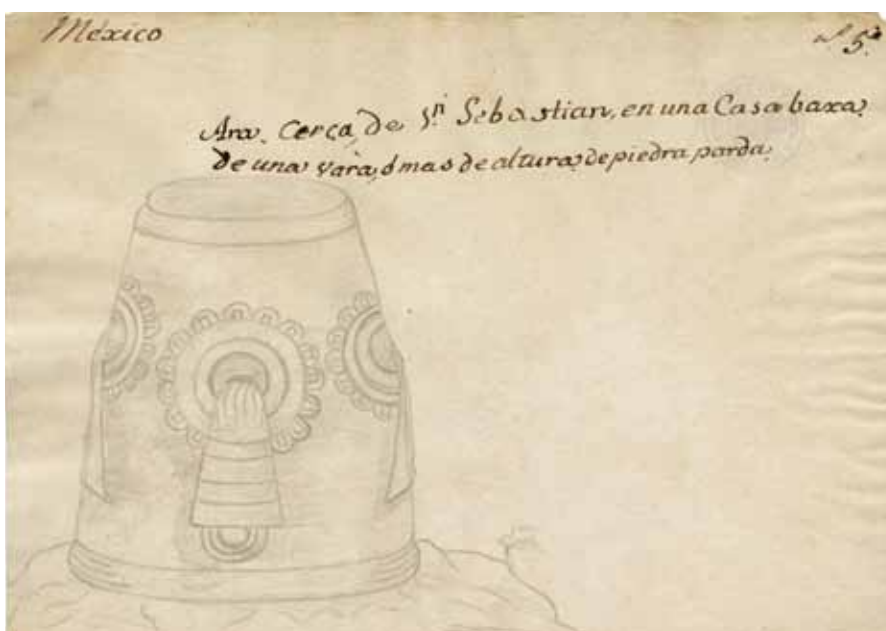 México
5.a
Ara. cerca de Sn. Sebastian, en una Casa baxa,
de una vara, ó mas de altura, de piedra parda,